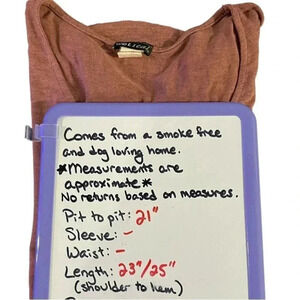 Comes from a smoke free
and dog loving home.
*Measurements are
approximate*
No returns based on measures.
Pit to pit: 21"
Sleeve: -
Waist: -
Length: 23"/25"
(shoulder to hem)